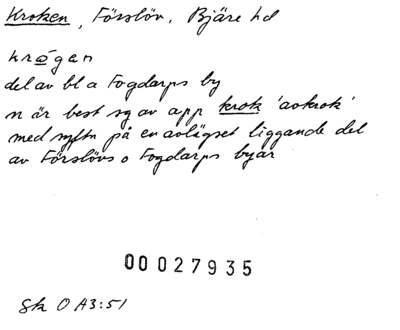 Kroken, Förslöv, Bjäre hd
krǫ́gen
del av bl a Fogdarps by
n är best sg av app krok 'avkrok'
med syftn på en avlägset liggande del
av Förslövs o Fogdarps byar
00027935
Sk O A3:51